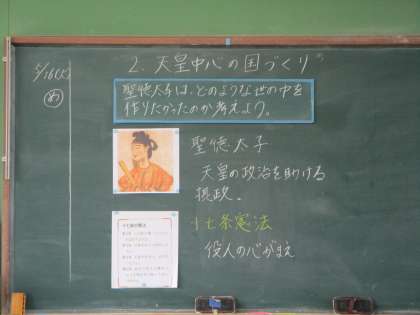 5/16(火)
2. 天皇中心の国づくり
め
聖徳太子は、どのような世の中を
作りたかったのか考えよう。
聖徳太子
天皇の政治を助ける
摂政。
十七条憲法
役人の心がまえ
十七条の憲法